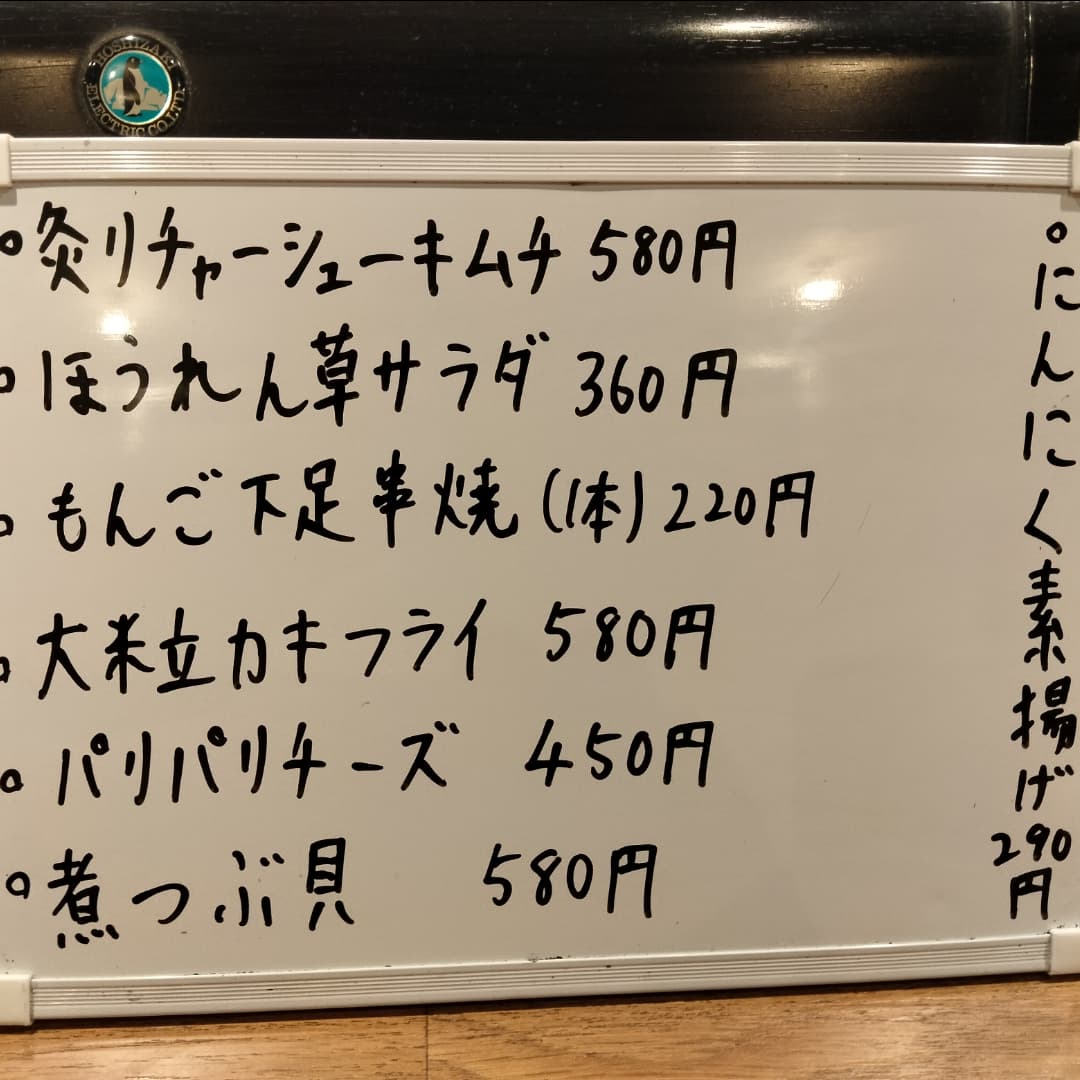 HOSHIZAKI
ELECTRIC CO.,LTD.
。炙りチャーシューキムチ 580円
。ほうれん草サラダ 360円
。もんご下足串焼(1本)220円
。大粒カキフライ 580円
。パリパリチーズ 450円
。煮つぶ貝 580円
。にんにく素揚げ290円